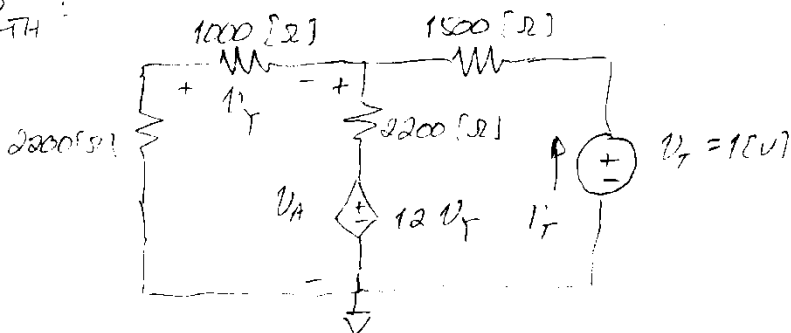 TH :
1000 [Ω]
1500 [Ω]
+ v_Y -
+
2200 [Ω]
2200 [Ω]
v_A
+
-
12 v_Y
i_T
+
-
v_T = 1 [V]
-